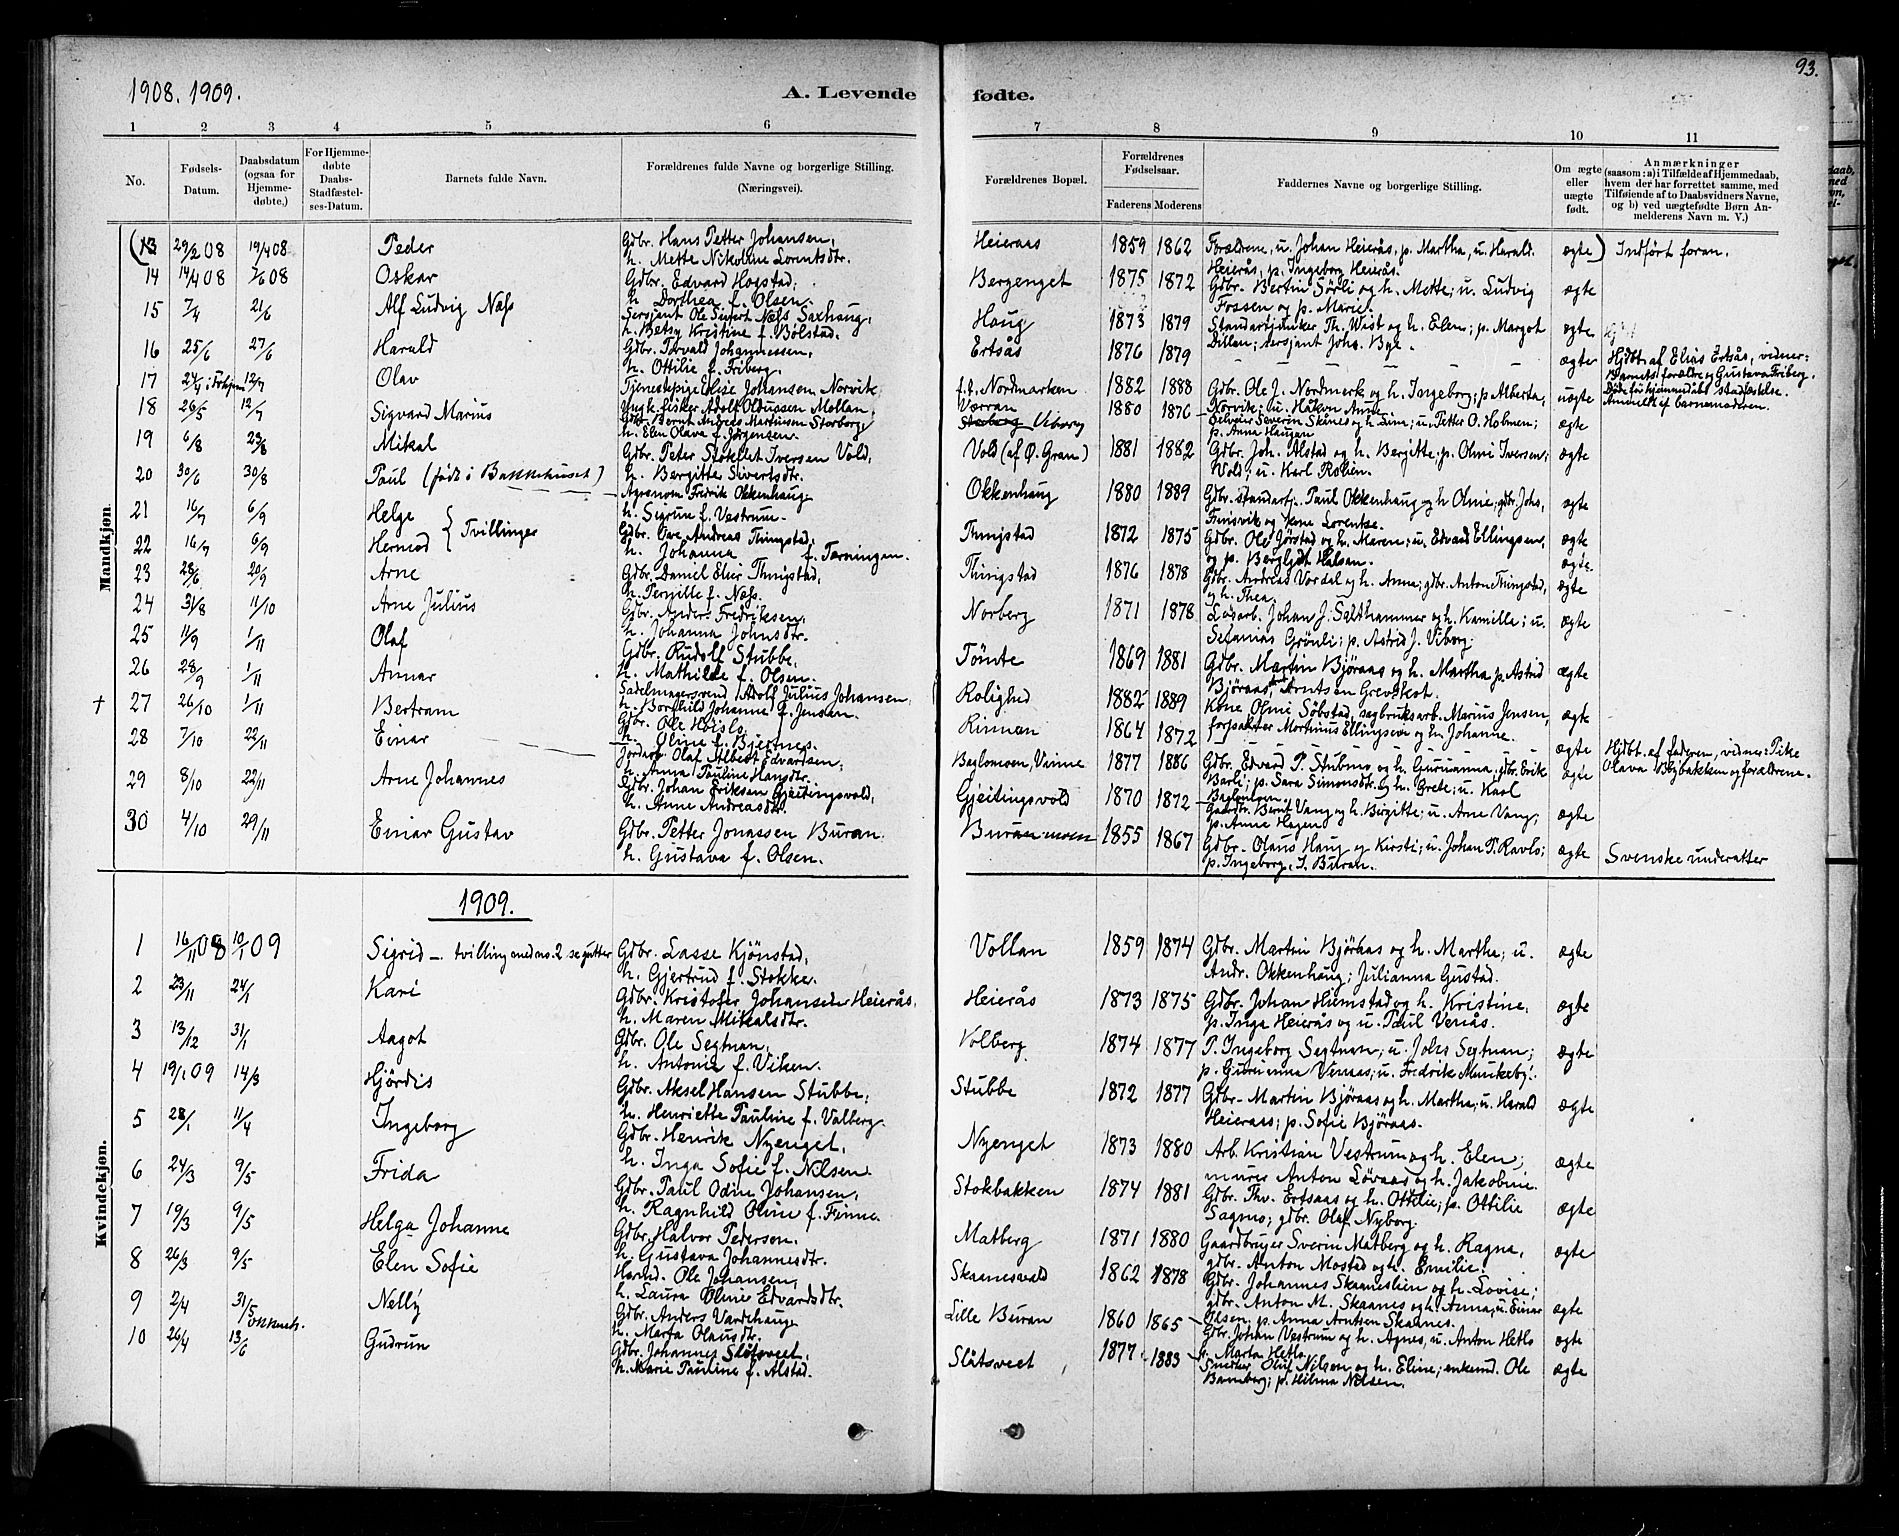 1908. 1909.
A. Levende fødte.
93.
1 2 3 4 5 6 7 8 9 10 11
No.
Fødsels-Datum.
Daabsdatum (ogsaa for Hjemme-døbte,)
For Hjemme-døbte Daabs-Stadfæstel-ses-Datum.
Barnets fulde Navn.
Forældrenes fulde Navne og borgerlige Stilling. (Næringsvei).
Forældrenes Bopæl.
Forældrenes Fødselsaar.
Faderens Moderens
Faddernes Navne og borgerlige Stilling.
Om ægte eller uægte født.
Anmærkninger
(saasom: a) i Tilfælde af Hjemmedaab,
hvem der har forrettet samme, med
Tilføiende af to Daabsvidners Navne,
og b) ved uægtefødte Børn An-
melderens Navn m. V.)
Mandkjøn.
(13 29/2 08 19/4 08 Peder Gdbr. Hans Petter Johansen, h. Mette Nikoline Lorntsdtr. Heieraas 1859 1862 Forældrene, u. Johan Heierås, p. Martha, u. Harald Heierås, p. Ingeborg Heierås. ægte) Indført foran.
14 14/4 08 7/6 08 Oskar Gdbr. Edvard Hogstad, h. Dorthea f. Olsen. Bergenget 1875 1872 Gdbr. Bertin Sörli og h. Mette; u. Ludvig Fossen og p. Marie. ægte
15 7/4 21/6 Alf Ludvig Næss Sersjant Ole Sivert Næss Saxhaug, h. Betsy Kristine f. Bölstad. Haug 1873 1879 Standartjunker Th. Wist og h. Elen; p. Margot Dillen; sersjant Johs. Bye. ægte
16 25/6 27/6 Harald Gdbr. Torvald Johannessen, h. Ottilie f. Friberg. Ertsås 1876 1879 — — — ægte Hjdbt. af Elias Ertsås, vidner: Barnets forældre og Gustava Friberg.
17 12/7 Olav Tjenestepige Elise Johansen Norvik, Ungk. fisker Adolf Oldussen Mollan. f.t. Nordmarken Værran 1882 1888 Gdbr. Ole J. Nordmerk og h. Ingeborg; p. Alberta Norvik; u. Håkon Anne. uægte Anmeldt af barnemoderen.
18 26/5 12/7 Sigvard Marius Gdbr. Bernt Andreas Martinsen Storborg, h. Elen Olava f. Jørgensen. Viborg 1880 1876 Severin Skånes og h. Lina; u. Petter O. Holmen; p. Anna Haugan ægte
19 6/8 23/8 Mikal Gdbr. Peter Stokflet Iversen Vold, h. Bergitte Sivertsdtr. Vold (af Ø. Gran) 1881 1882 Gdbr. Joh. Alstad og h. Bergitte; p. Olmi Iversen; Wold; u. Karl Rolien. ægte
20 30/6 30/8 Paul (født i Bakkehuset) Agronom Fredrik Okkenhaug h. Sigrun f. Vestrum. Okkenhaug 1880 1889 Gdbr. standartj. Paul Okkenhaug og h. Oline; gdbr. Johs. Finsvik og kone Lorentse. ægte
21 16/7 6/9 Helge
22 16/7 6/9 Hermod } Tvillinger Gdbr. Ove Andreas Thingstad, h. Johanna f. Tørningen. Thingstad 1872 1875 Gdbr. Ole Jörstad og h. Maren; u. Edvard Ellingsen, og p. Bergljot Halsan. ægte ægte.
23 28/6 20/9 Arne Gdbr. Daniel Elier Thingstad, h. Pernille f. Næss. Thingstad 1876 1878 Gdbr. Andreas Vordal og h. Anna; gdbr. Anton Thingstad, og h. Thea. ægte
24 31/8 11/10 Arne Julius Gdbr. Anders Fredriksen, h. Johanna Johnsdtr. Norberg 1871 1878 Løsarb. Johan J. Salthammer og h. Kamille; u. Sefanias Grönli; p. Astrid J. Viborg. ægte
25 11/9 1/11 Olaf Gdbr. Rudolf Stubbe, h. Mathilde f. Olsen. Tömte 1869 1881 Gdbr. Martin Björaas og h. Martha p. Astrid Björaas, Arntsen Grevskot. ægte
26 28/9 1/11 Annar Sadelmagersvend Adolf Julius Johansen, h. Borghild Johanne f. Jensen. Rolighed 1882 1889 Kone Olmi Söbstad, sagbruksarb. Marius Jensen, forpakter Mortinus Ellingsen og h. Johanne. ægte
+ 27 26/10 1/11 Bertram Gdbr. Ole Hojslo, h. Oline f. Bjertnes. Rinnan 1864 1872 ægte Hjdbt. af faderen, vidner: Pike Olava Bybakken og forældrene.
28 7/10 22/11 Einar Jordarb. Olaf Albert Edvartsen, h. Anna Pauline Hansdtr. Baglomoen, Vinne 1877 1886 Gdbr. Edvard P. Stubmo og h. Gurianna, gdbr. Erik Barli; p. Sara Simonsdtr. og h. Grete; u. Karl Baglomoen. ægte
29 8/10 22/11 Arne Johannes Gdbr. Johan Eriksen Gjeitingsvold, h. Anne Andreasdtr. Gjeitingsvold 1870 1872 Gaardbr. Bernt Vang og h. Birgitte; u. Arne Vang, p. Anne Hagen ægte
30 4/10 29/11 Einar Gustav Gdbr. Petter Jonassen Buran. h. Gustava f. Olsen. Buranmoen 1855 1867 Gdbr. Olaus Haug og Kirsti; u. Johan P. Ravlo; p. Ingeborg, J. Buran. ægte Svenske undersåtter
1909.
Kvindekjøn.
1 16/11 08 10/1 09 Sigrid – tvilling med no. 2 se gutter Gdbr. Lasse Kjönstad, h. Gjertrud f. Stokke. Vollan 1859 1874 Gdbr. Martin Björaas og h. Martha; u. Andr. Okkenhaug; Julianna Gustad. ægte
2 23/11 24/1 Kari Gdbr. Kristofer Johansen Heierås, h. Maren Mikalsdtr. Heierås 1873 1875 Gdbr. Johan Humstad og h. Kristine, p. Inga Heierås og u. Paul Venås. ægte
3 13/12 31/1 Aagot Gdbr. Ole Segtnan, h. Antonie f. Viken. Volberg 1874 1877 P. Ingeborg Segtnan; u. Johs Segtnan; p. Gurianna Venaas; u. Fredrik Munkeby. ægte
4 19/1 09 14/3 Hjördis Gdbr. Aksel Hansen Stubbe, h. Henriette Pauline f. Valberg. Stubbe 1872 1877 Gdbr. Martin Björaas og h. Martha; u. Harald Heieraas; p. Sofie Björaas. ægte
5 28/1 11/4 Ingeborg Gdbr. Henrik Nyenget, h. Inga Sofie f. Nilsen. Nyenget 1873 1880 Arb. Kristian Vestrum og h. Elen; murer Anton Lövaas og h. Jakobine. ægte
6 24/3 9/5 Frida Gdbr. Paul Odin Johansen, h. Ragnhild Oline f. Finne. Stokbakken 1874 1881 Gdbr. Thv. Ertsaas og h. Ottilie; p. Ottilie Sagmo; gdbr. Olaf Nyborg. ægte
7 19/3 9/5 Helga Johanne Gdbr. Halvor Pederson. h. Gustava Johannesdtr. Matberg 1871 1880 Gaardbruger Sverin Matberg og h. Ragna, gdbr. Anton Mostad og h. Emilie. ægte
8 26/3 9/5 Elen Sofie Hmd. Ole Johansen, h. Laura Oline Edvardsdtr. Skaanesvald 1862 1878 Gdbr. Johannes Skaaneslien og h. Lovise; gdbr. Anton M. Skaanes og h. Anna; u. Einar Olsen, p. Anna Arntsen Skaanes. ægte
9 2/4 31/5 Okkenh. Nelly Gdbr. Anders Vardehaug h. Marta Olausdtr. Lille Buran 1860 1865 Gdbr. Johan Vestrum og h. Agnes, u. Anton Hetlo p. Marta Hetlo ægte
10 26/4 13/6 Gudrun Gdbr. Johannes Slåtsveet, h. Marie Pauline f. Alstad. Slåtsveet 1877 1883 Snedker Oluf Nilsen og h. Eline; enkemd. Ole Bamberg; p. Hilma Nilsen. ægte